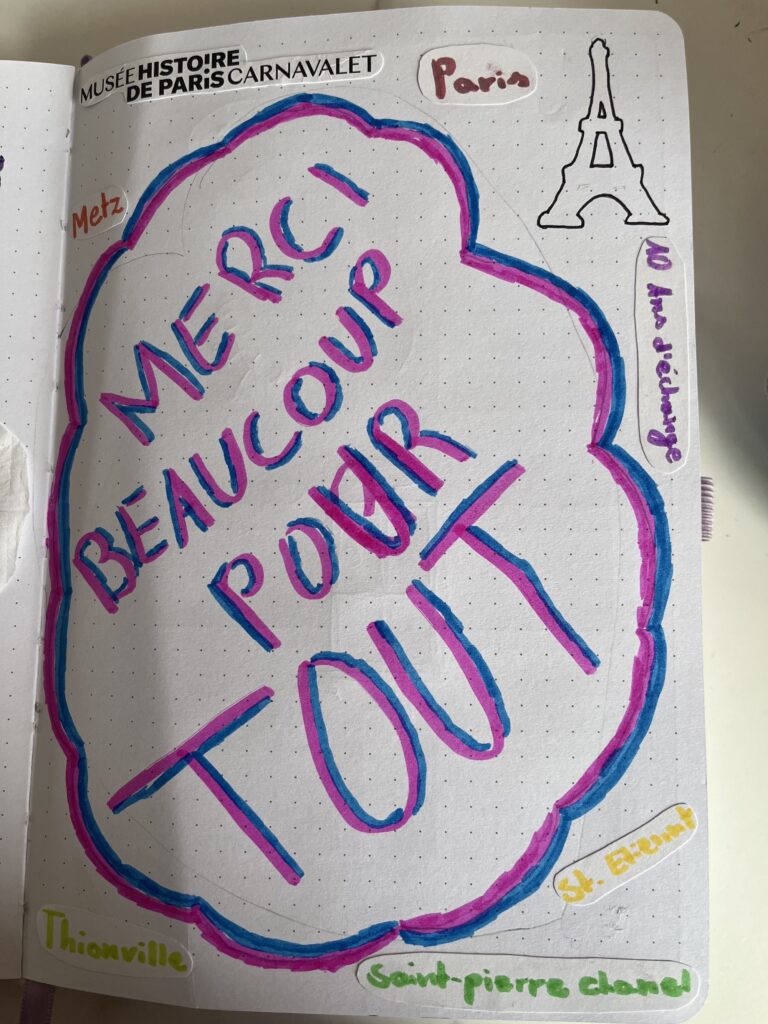 MUSÉE HISTOIRE DE PARIS CARNAVALET
Paris
Metz
10 Ans d'échange
MERCI
BEAUCOUP
POUR
TOUT
St. Etienne
Thionville
Saint-pierre chanel